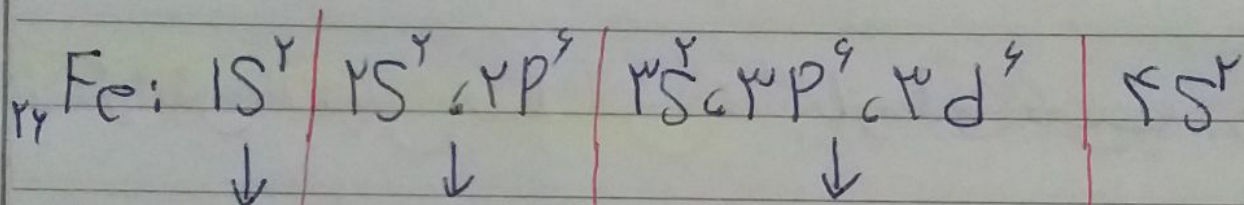 ۲۶Fe: ۱S۲ | ۲S۲ ، ۲P۶ | ۳S۲ ، ۳P۶ ، ۳d۶ | ۴S۲
↓ ↓ ↓